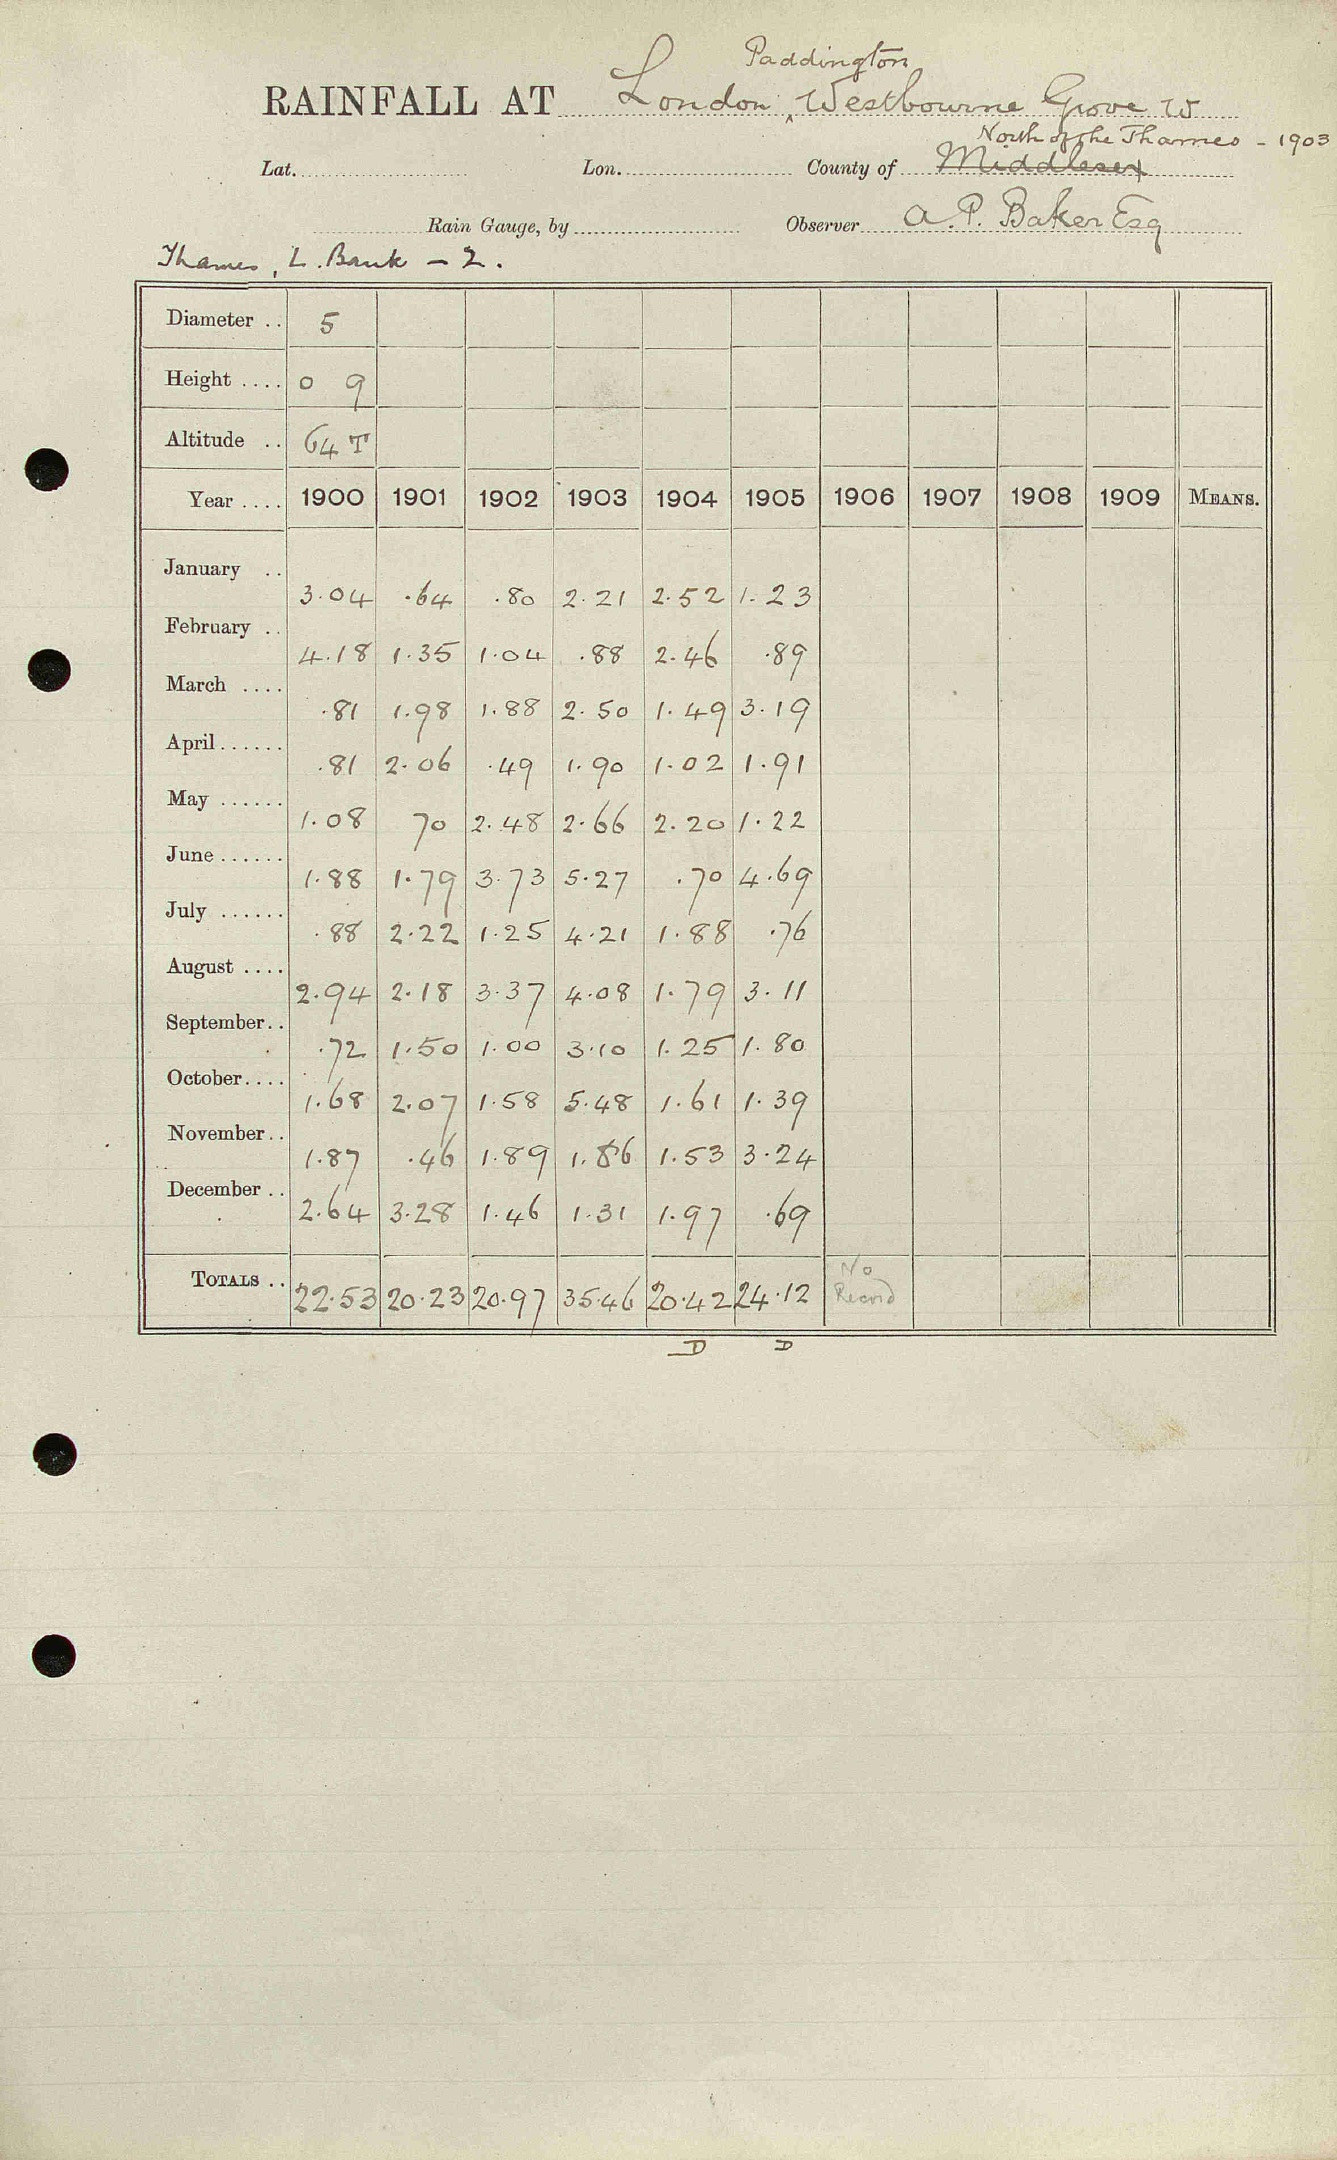 Paddington
RAINFALL AT London ‸ Westbourne Grove W
North of the Thames - 1903
Lat. Lon. County of Middlesex
Rain Gauge, by Observer A. P. Baker Esq
Thames, L. Bank - 2.
Diameter .. 5
Height .... 0 9
Altitude .. 64 T
Year .... 1900 1901 1902 1903 1904 1905 1906 1907 1908 1909 MEANS.
January .. 3.04 .64 .80 2.21 2.52 1.23
February .. 4.18 1.35 1.04 .88 2.46 .89
March .... .81 1.98 1.88 2.50 1.49 3.19
April...... .81 2.06 .49 1.90 1.02 1.91
May ...... 1.08 70 2.48 2.66 2.20 1.22
June...... 1.88 1.79 3.73 5.27 .70 4.69
July ...... .88 2.22 1.25 4.21 1.88 .76
August .... 2.94 2.18 3.37 4.08 1.79 3.11
September.. .72 1.50 1.00 3.10 1.25 1.80
October.... 1.68 2.07 1.58 5.48 1.61 1.39
November.. 1.87 .46 1.89 1.86 1.53 3.24
December .. 2.64 3.28 1.46 1.31 1.97 .69
TOTALS .. 22.53 20.23 20.97 35.46 20.42 24.12 No Record
D D